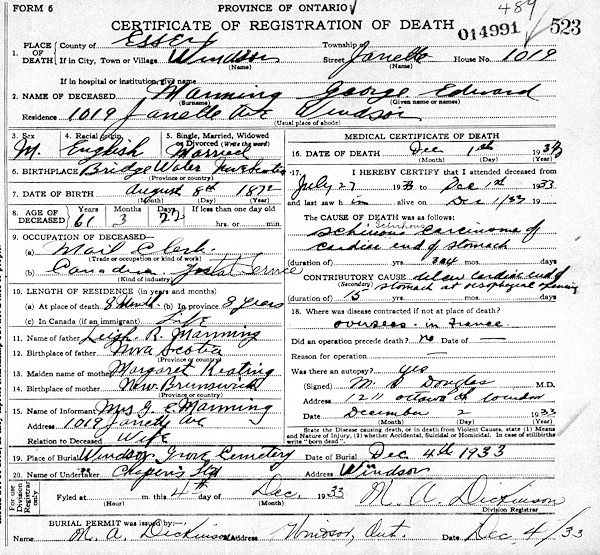 FORM 6
PROVINCE OF ONTARIO
489
CERTIFICATE OF REGISTRATION OF DEATH
014991
523
1. PLACE OF DEATH
County of Essex Township of
If in City, Town or Village Windsor Street Janette House No. 1019
(Name) (Name)
If in hospital or institution, give name
2. NAME OF DECEASED Manning George Edward
(Surname) (Given name or names)
Residence 1019 Janette Ave Windsor
(Usual place of abode)
3. Sex M. 4. Racial origin English 5. Single, Married, Widowed or Divorced (Write the word) Married
6. BIRTHPLACE Bridge Water Nova Scotia
(Province or country)
7. DATE OF BIRTH August 8th 1872
(Month) (Day) (Year)
8. AGE OF DECEASED Years 61 Months 3 Days 22 If less than one day hrs. min.
9. OCCUPATION OF DECEASED—
(a) Mail Clerk
(Trade or occupation or kind of work)
(b) Canadian Postal Service
(Kind of industry)
10. LENGTH OF RESIDENCE (in years and months)
(a) At place of death 8 (b) In province 8 years
(c) In Canada (if an immigrant) Life
11. Name of father Leigh R. Manning
12. Birthplace of father Nova Scotia
(Province or country)
13. Maiden name of mother Margaret Keating
14. Birthplace of mother New Brunswick
(Province or country)
15. Name of Informant Mrs G. E. Manning
Address 1019 Janette Ave
Relation to Deceased Wife
MEDICAL CERTIFICATE OF DEATH
16. DATE OF DEATH Dec 1st 193
(Month) (Day) (Year)
17. I HEREBY CERTIFY that I attended deceased from
July 27 1933 to Dec 1st 1933
and last saw him alive on Dec 1/33 19
The CAUSE OF DEATH was as follows:
Schirrhous
carcinoma of
cardiac end of stomach
(duration of) yrs. mos. days
CONTRIBUTORY CAUSE cardiac end of
(Secondary) stomach at esophageal opening
(duration of) yrs. mos. days
18. Where was disease contracted if not at place of death?
overseas in France
Did an operation precede death? no Date of —
Reason for operation —
Was there an autopsy? yes
(Signed) Douglas M.D.
Address 1211 Ottawa st
Date December 2 1933
(Month) (Day) (Year)
State the Disease causing death, or in death from Violent Causes, state (1) Means and Nature of Injury, (2) whether Accidental, Suicidal or Homicidal. In case of stillbirth write "born dead".
19. Place of Burial Windsor Grove Cemetery Date of Burial Dec 4th 1933
20. Name of Undertaker Address Windsor
For use Division Registrar only
Fyled at m. 4th Dec. 1933 M. A. Dickinson
(Hour) (Month) Division Registrar
BURIAL PERMIT was issued by:—
Name M. A. Dickinson Address Windsor, Ont. Date Dec 4/33